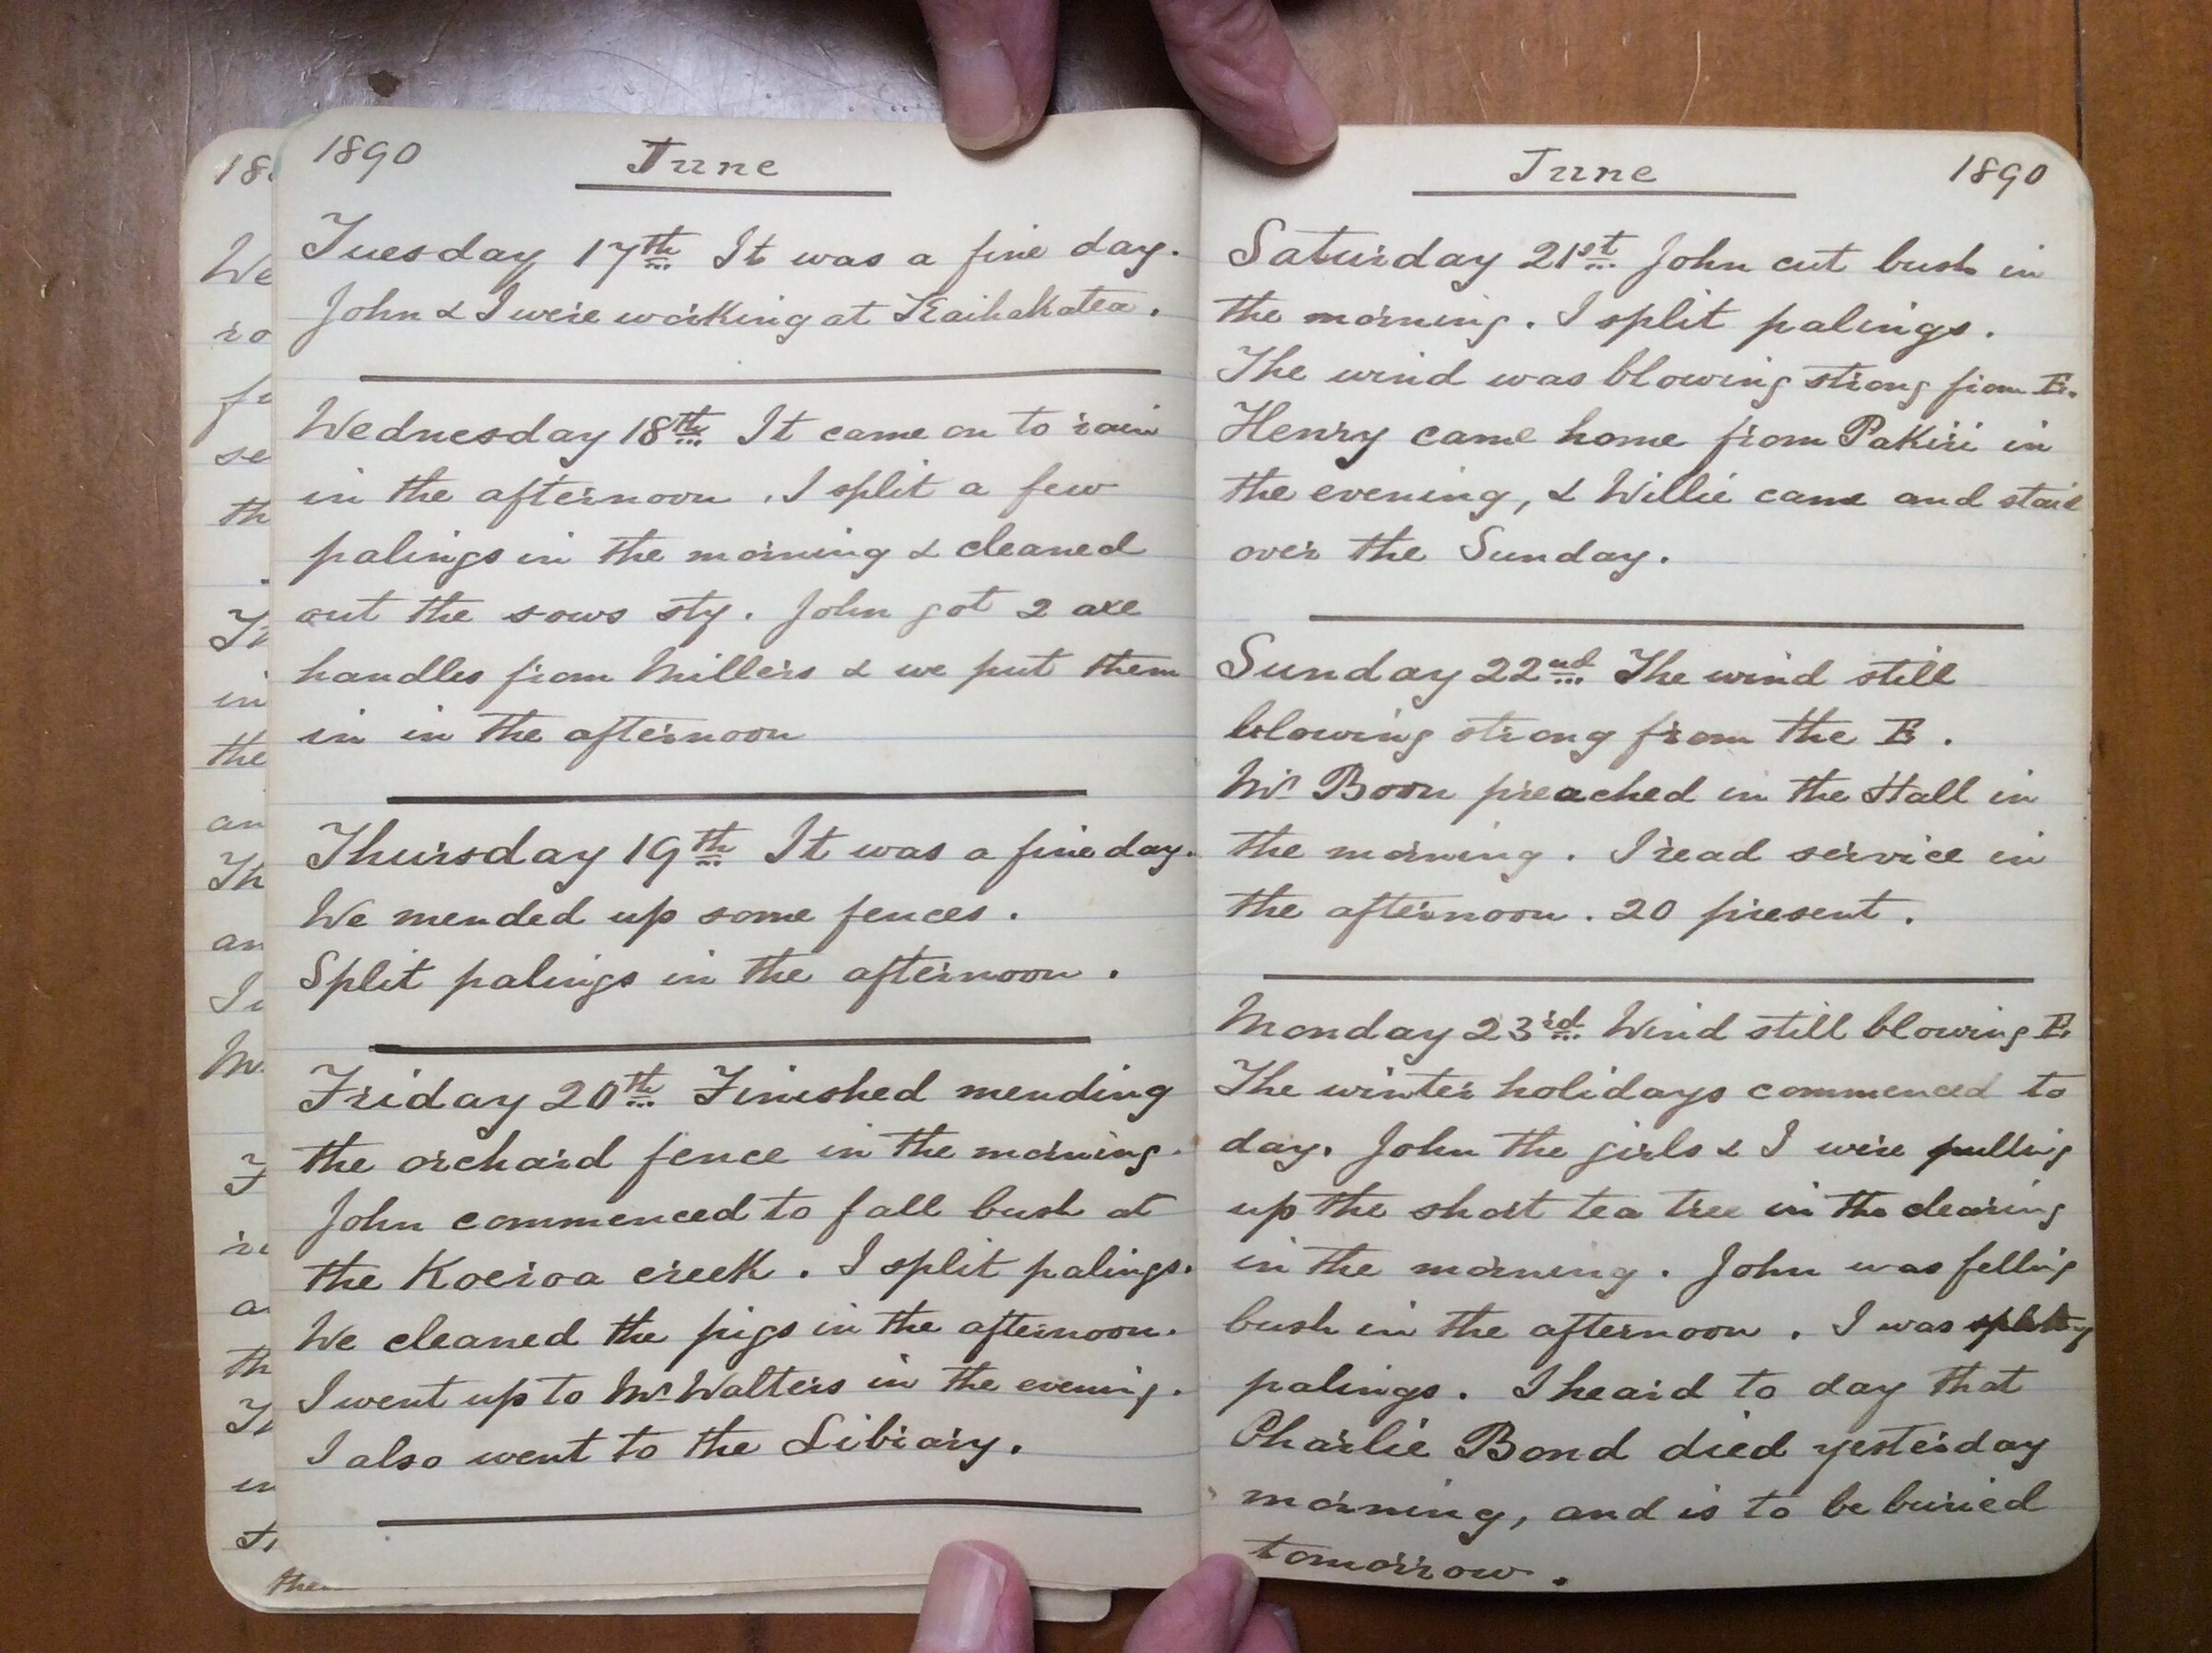 1890 June
Tuesday 17th It was a fine day.
John & I were working at Kaihakatea.
Wednesday 18th It came on to rain
in the afternoon. I split a few
palings in the morning & cleaned
out the sows sty. John got 2 axe
handles from Millers & we put them
in in the afternoon
Thursday 19th It was a fine day.
We mended up some fences.
Split palings in the afternoon.
Friday 20th Finished mending
the orchard fence in the morning.
John commenced to fall bush at
the Koeroa creek. I split palings.
We cleaned the pigs in the afternoon.
I went up to Mr Walters in the evening.
I also went to the Library.
June 1890
Saturday 21st John cut bush in
the morning. I split palings.
The wind was blowing strong from E.
Henry came home from Pakiri in
the evening, & Willie came and staid
over the Sunday.
Sunday 22nd The wind still
blowing strong from the E.
Mr Boon preached in the Hall in
the morning. I read service in
the afternoon. 20 present.
Monday 23rd Wind still blowing E.
The winter holidays commenced to
day. John the girls & I were pulling
up the short tea tree in the clearing
in the morning. John was felling
bush in the afternoon. I was splitting
palings. I heard to day that
Charlie Bond died yesterday
morning, and is to be buried
tomorrow.
18
We
ro
se
th
in
the
an
Th
an
M
th
them